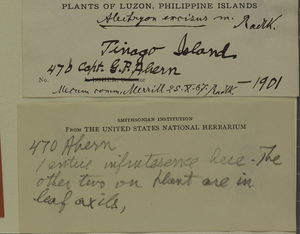 PLANTS OF LUZON, PHILIPPINE ISLANDS
Alectryon excisus m. Radlk.
Tinago Island
No. 470 Capt. G. P. Ahern — 1901
Mecum comm. Merrill 25.X.67. Radlk
SMITHSONIAN INSTITUTION
FROM THE UNITED STATES NATIONAL HERBARIUM
470 Ahern
1 entire infrutesence here. The
other two on plant are in
leaf axils,